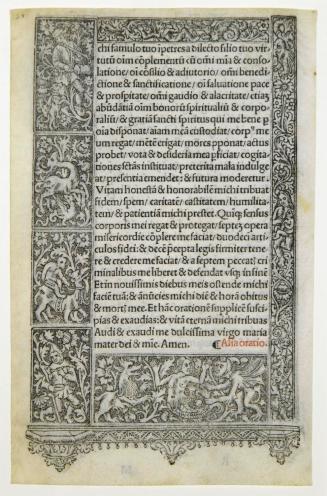 chi famulo tuo ipetres a dilecto filio tuo vir-
tutū oīm cōplementū cū oīmi mīa & conso-
latione / oī cōsilio & adiutorio / oīmi benedi-
ctione & sanctificatione / oī saluatione pace
& prospitate / oīmi gaudio & alacritate / etiaȝ
abūdātiā oīm bonoȝ spiritualiū & corpo-
raliū / & gratiā sancti spiritus qui me bene ꝑ
oīa disponat / aīam meā custodiat / corpꝰ me
um regat / mētē erigat / mores ꝓponat / actus
probet / vota & desideria mea ꝑficiat / cogita-
tiones sctās instituat / preterita mala indulge
at / presentia emendet : & futura moderetur .
Vitam honestā & honorabilē michi tribuat
fidem / spem / caritatē / castitatem / humilita-
tem / & patientiam michi prestet . Quīqȝ sensus
corporis mei regat & protegat / septeȝ opera
misericordie cōplere me faciat / duodeci arti-
culos fidei : & decē ꝑcepta legis firmiter tene
re & credere me faciat / & a septem peccat) cri
minalibus me liberet & defendat vsqȝ in finē
Et in nouissimis diebus meis ostende michi
faciē tuā : & ānūcies michi diē & horā obitus
& mort) mee . Et hāc orationē supplicē susci-
pias & exaudias : & vitā eternā michi tribuas
Audi & exaudi me dulcissima virgo maria
mater dei & mīe. Amen. ¶ Alia oratio.